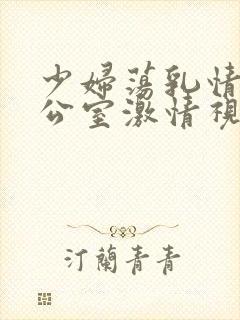 少婦蕩乳情
公室激情視
汀蘭青青